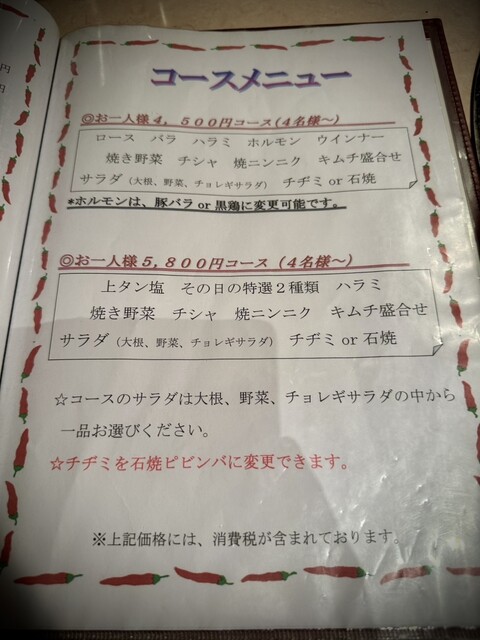 円
円
コースメニュー
◎お一人様4,500円コース(4名様～)
ロース バラ ハラミ ホルモン ウインナー
焼き野菜 チシャ 焼ニンニク キムチ盛合せ
サラダ(大根、野菜、チョレギサラダ) チヂミ or 石焼
*ホルモンは、豚バラ or 黒鶏に変更可能です。
◎お一人様5,800円コース(4名様～)
上タン塩 その日の特選2種類 ハラミ
焼き野菜 チシャ 焼ニンニク キムチ盛合せ
サラダ(大根、野菜、チョレギサラダ) チヂミ or 石焼
☆コースのサラダは大根、野菜、チョレギサラダの中から
一品お選びください。
☆チヂミを石焼ビビンバに変更できます。
※上記価格には、消費税が含まれております。